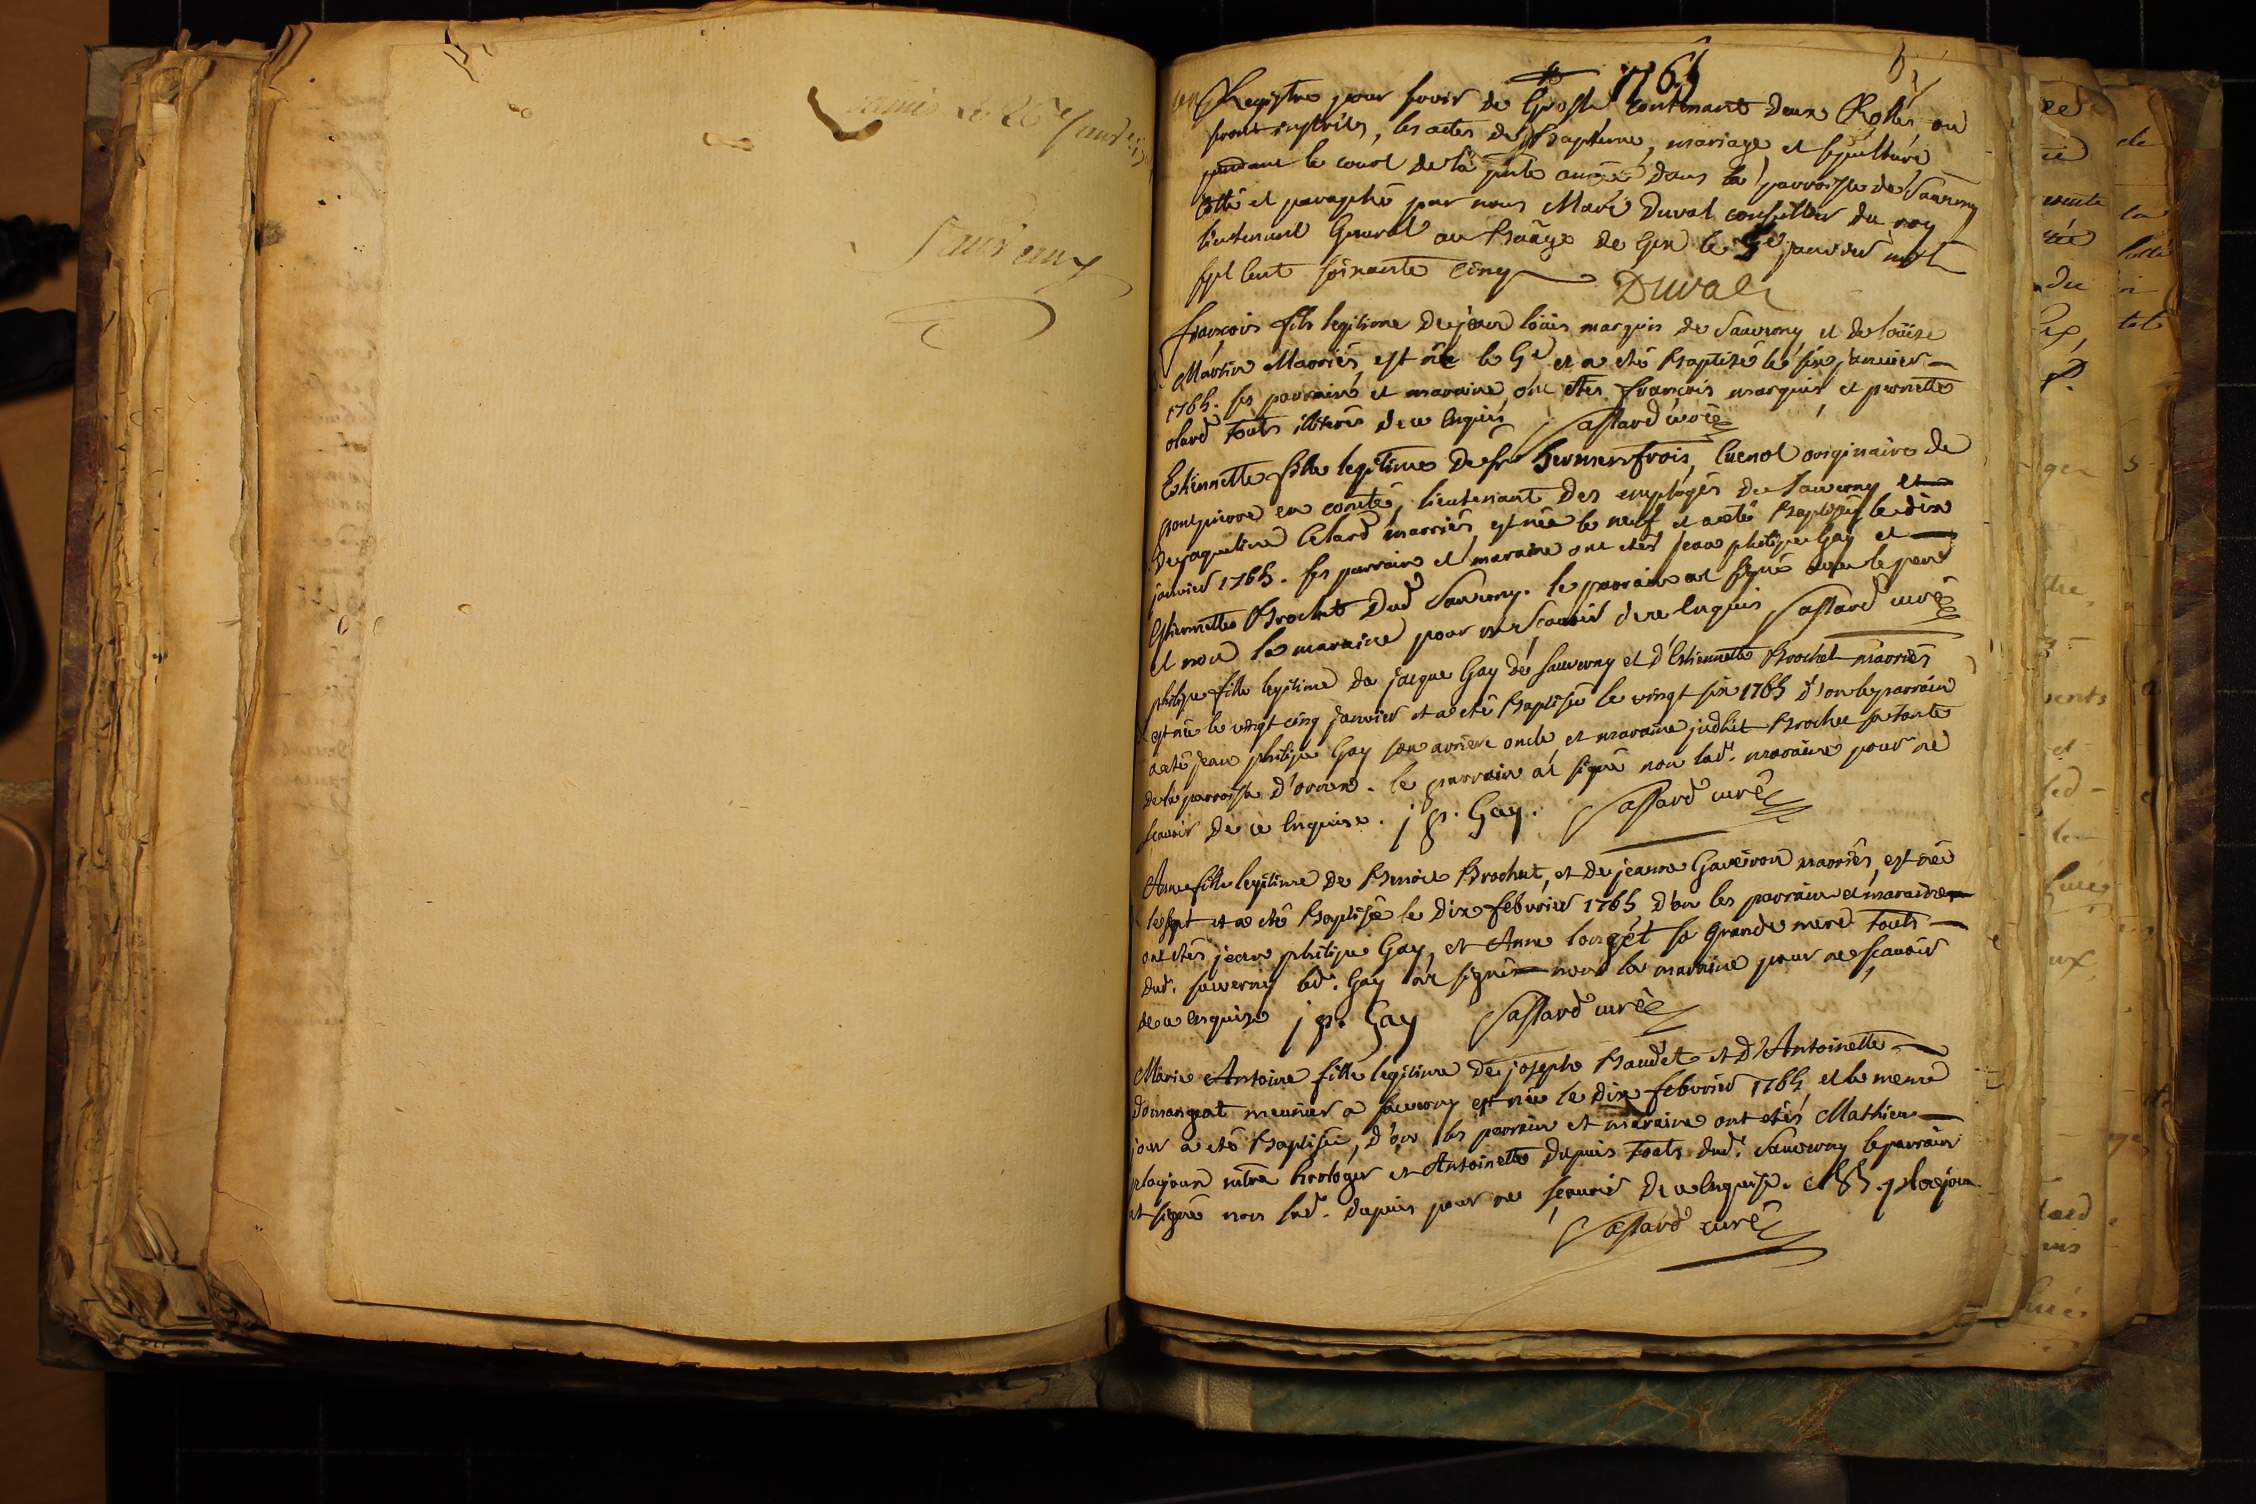 remis le 26e Janv
Sauverny
1765
Registre pour servir de Grosse contenant deux Rolles, ou
seront inscrits, les actes de Baptême, mariage et sepulture
pendant le cours de la pnte année dans la parroisse de Sauverny
Cotté et paraphé par nous Marc Duval conseiller du roy
lieutenant General au Baage de Gex le janvier mil
sept cent soixante cinq
Duval
françois fils legitime de jean loüis marquis de Sauverny, et de loüise
Martin Marriés, est né le 5e et a eté Baptisé le six janvier
1765. ses parrain et maraine, ont etes françois marquis, et pernette
olard touts illiterés de ce enquis Sastard curé
Estiennette fille legitime de fr Cuenot originaire de
pontpierre en comté, lieutenant des employés de Sauverny et
de jaqueline Celard marriés, est née le neuf et a eté Baptisée le dix
janvier 1765. ses parrain et maraine ont etés jean philipe Gay et
Estiennette Brochet dud Sauverny. le parrain at signé avec le pere
et non la maraine pour ne Scavoir de ce enquis Sastard curé
philipe fille legitime de jacque Gay de Sauverny et d'Estiennette Brochet marriés
est née le vingt cinq janvier et a eté Baptisée le vingt six 1765 d'on le parrain
a eté jean philipe Gay son arriere oncle, et maraine judhit Brochet sa tante
de la parroisse d'ornex. le parrain at signé non lad. maraine pour ne
scavoir de ce enquise. j p. Gay. Sastard curé
Anne fille legitime de Benoit Brochet, et de jeanne Gaveiron marriés, est née
le sept et a eté Baptisée le dix febvrier 1765 d'on les parrain et maraine
ont etés jean philipe Gay, et Anne longet sa Grande mere touts
dud. sauverny led. Gay at signé non la maraine pour ne scavoir
de ce enquise j p. Gay Sastard curé
Marie Antoine fille legitime de joseph Baudet et d'Antoinette
Domangeat meunier a sauverny est née le dix febvrier 1765 et le meme
jour a eté Baptisée, d'on les parrain et maraine ont etés Mathieu
plajoux mtre horloger et Antoinette dupuis touts dud. Sauverny le parrain
at signé non lad. dupuis pour ne scavoir de ce enquise. plajoux
Sastard curé